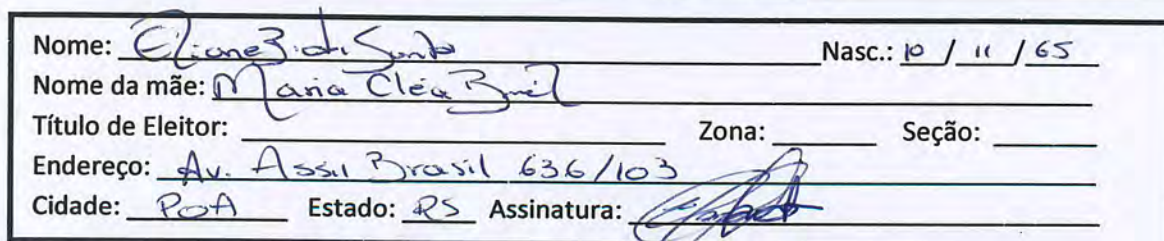 Nome: Eliane B. da Santo Nasc.: 10 / 11 / 65
Nome da mãe: Maria Cléa
Título de Eleitor: Zona: Seção:
Endereço: Av. Assis Brasil 636/103
Cidade: POA Estado: RS Assinatura: